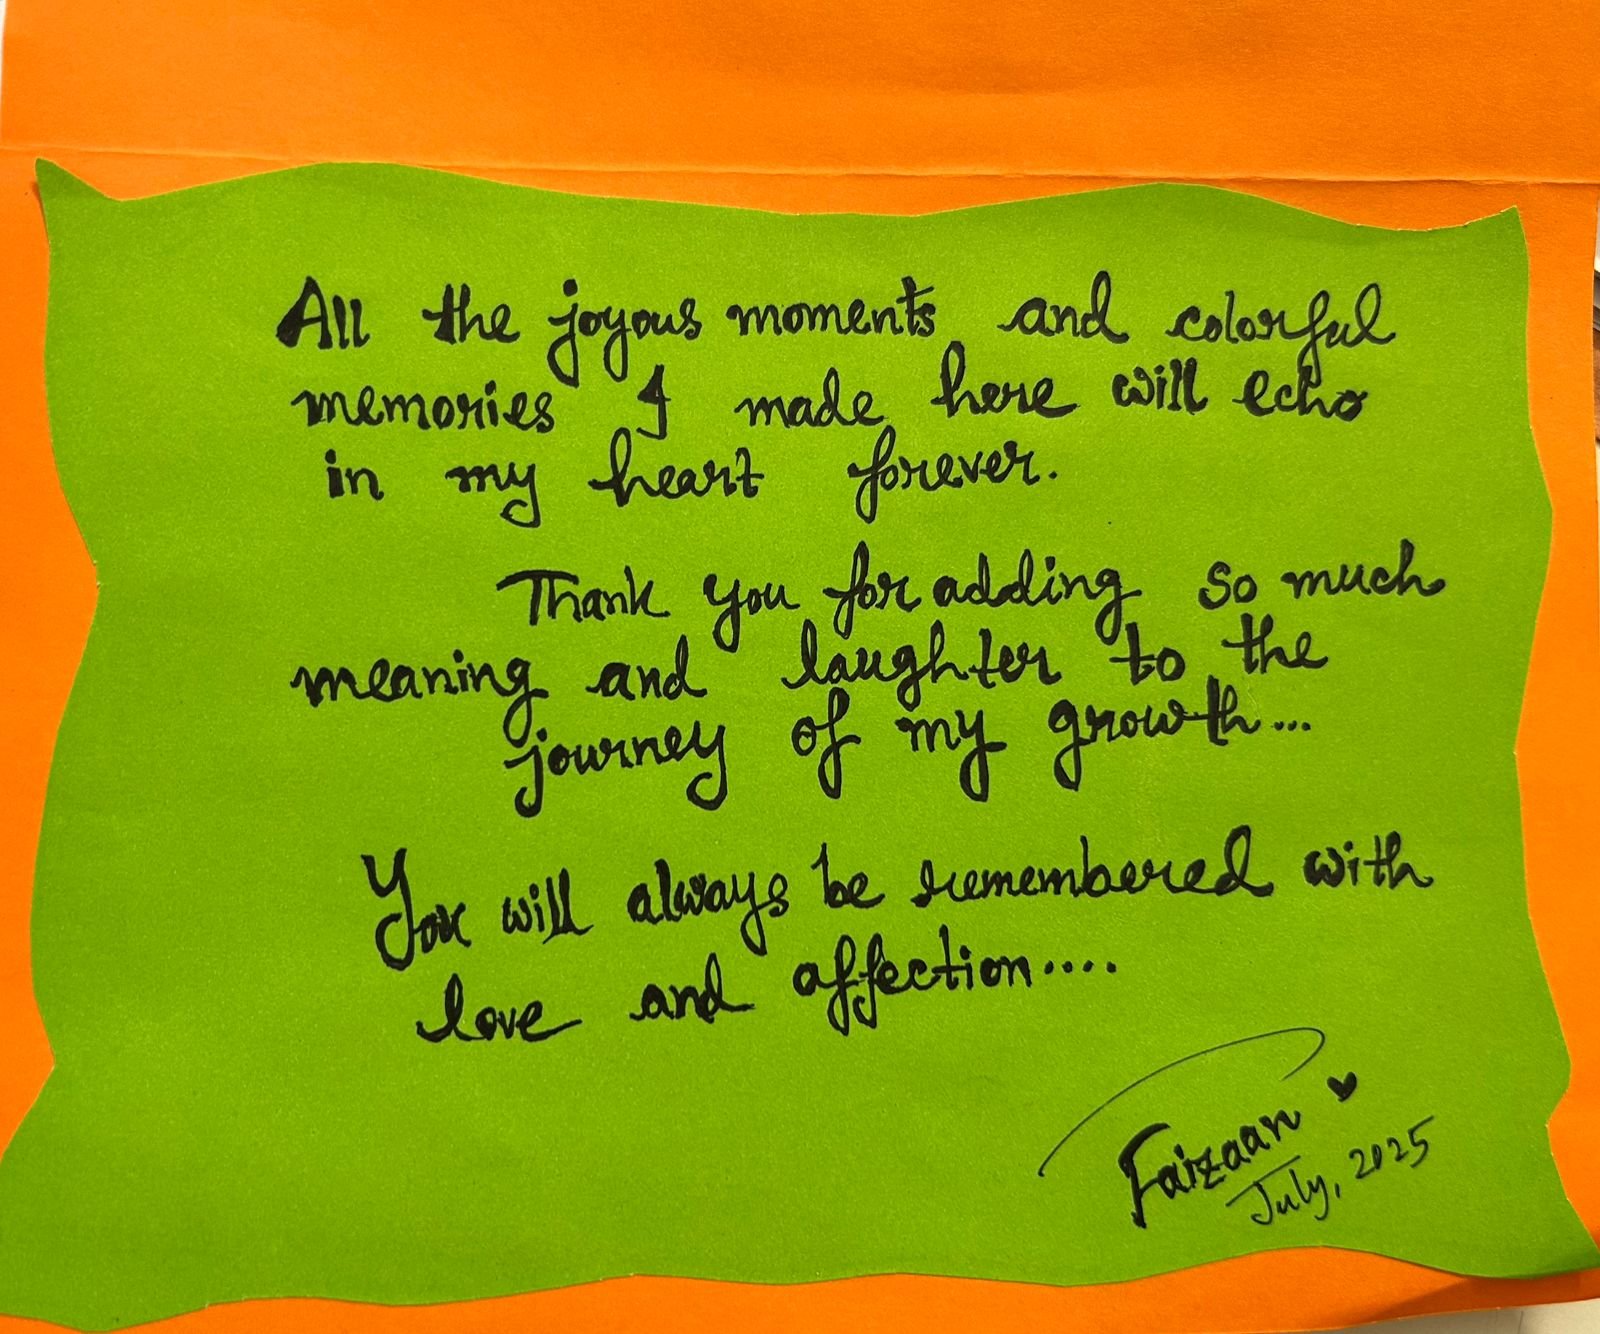 All the joyous moments and colorful
memories I made here will echo
in my heart forever.
Thank you for adding so much
meaning and laughter to the
journey of my growth...
You will always be remembered with
love and affection....
Faizaan ♥
July, 2025